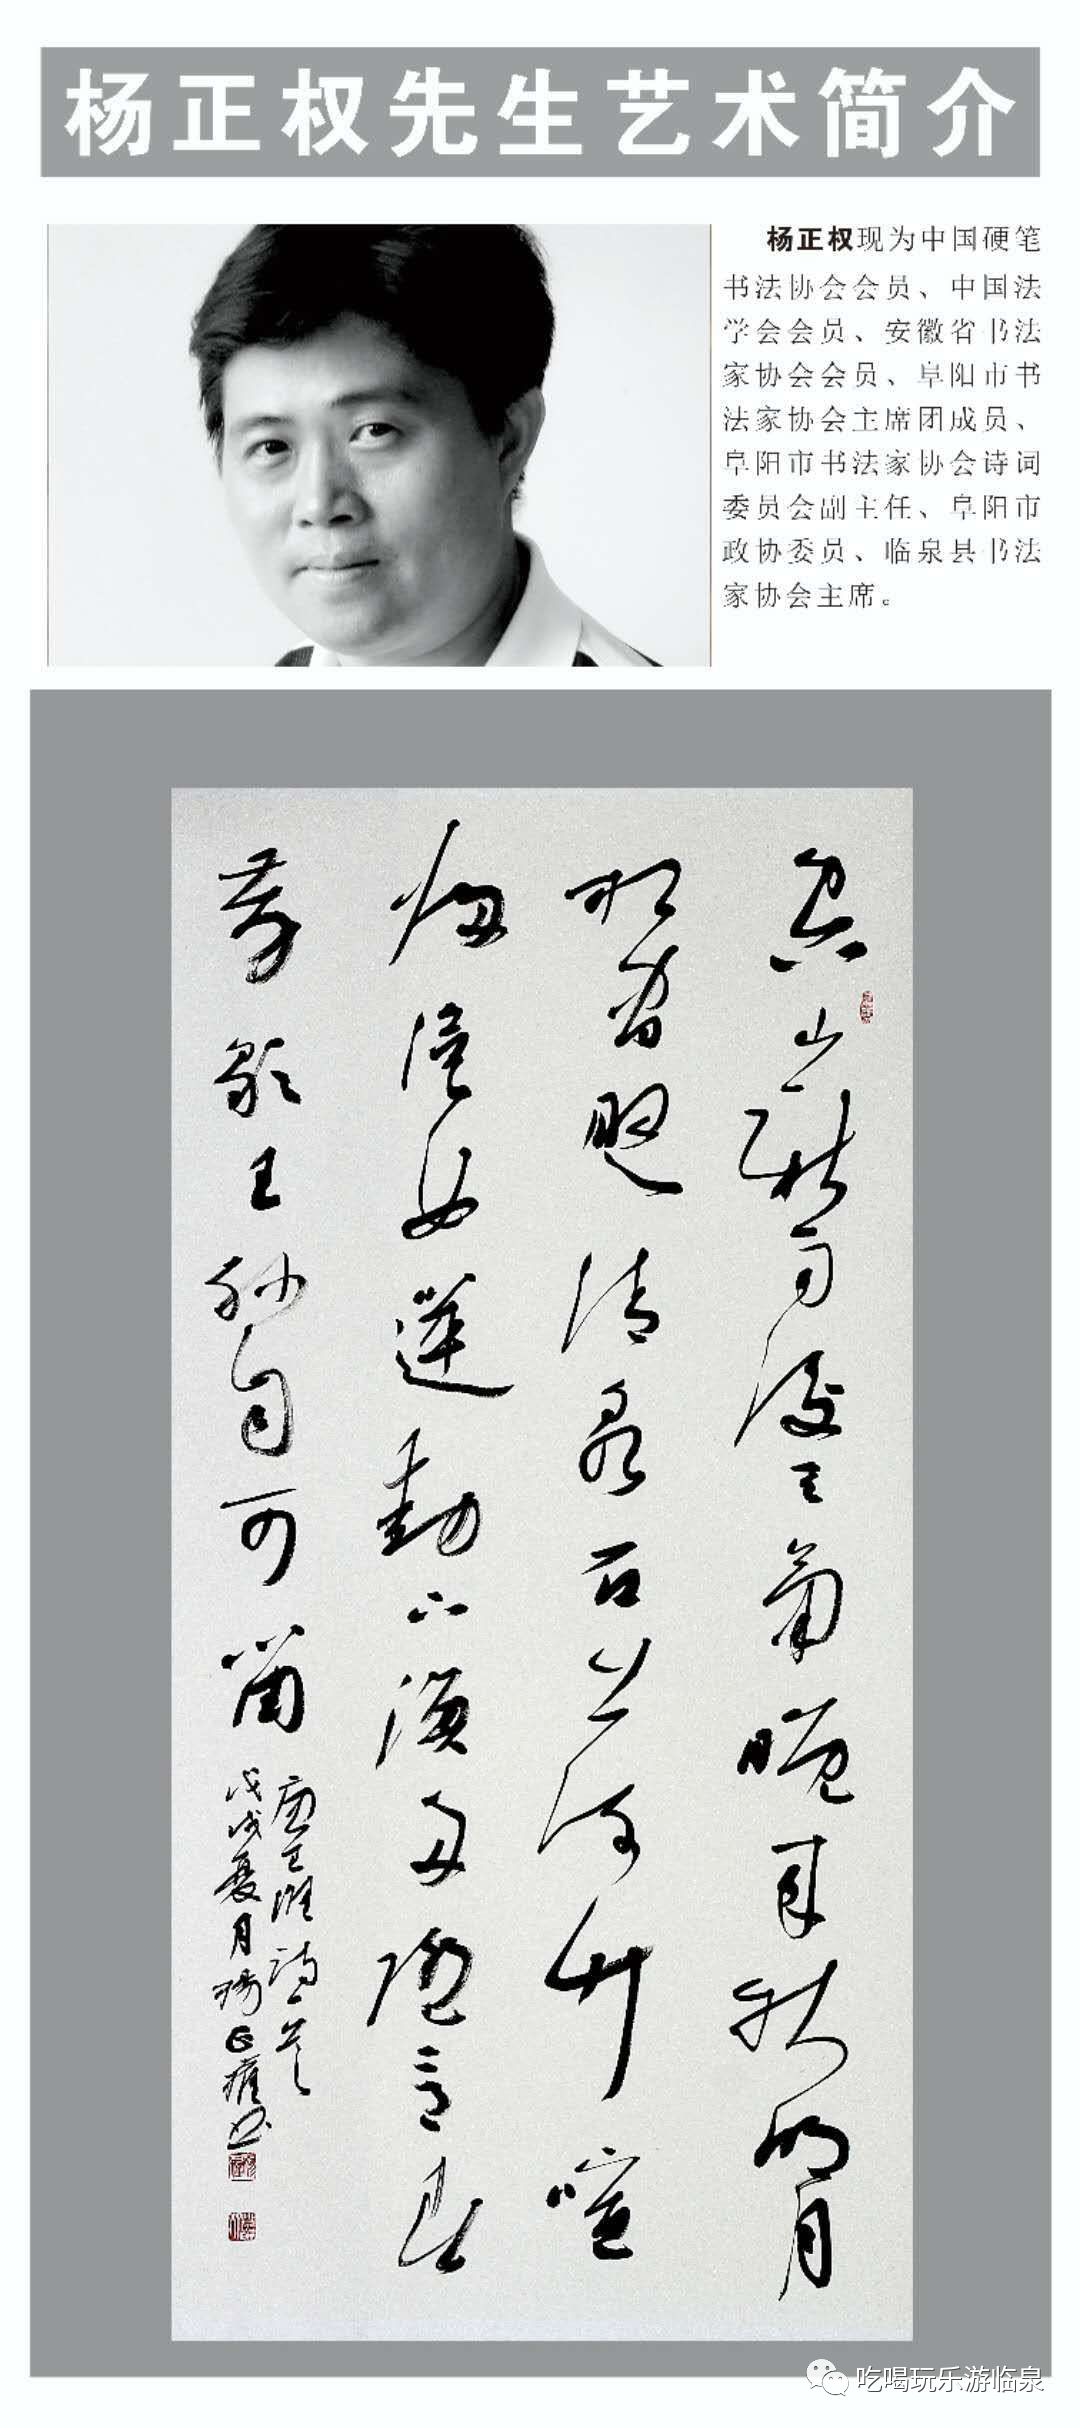 杨正权先生艺术简介
杨正权现为中国硬笔
书法协会会员、中国法
学会会员、安徽省书法
家协会会员、阜阳市书
法家协会主席团成员、
阜阳市书法家协会诗词
委员会副主任、阜阳市
政协委员、临泉县书法
家协会主席。
空山新雨後天氣晚來秋明月
松間照清泉石上流竹喧
歸浣女蓮動下漁舟隨意春
芳歇王孫自可留
唐王維詩一首
戊戌夏月楊正權書
吃喝玩乐游临泉